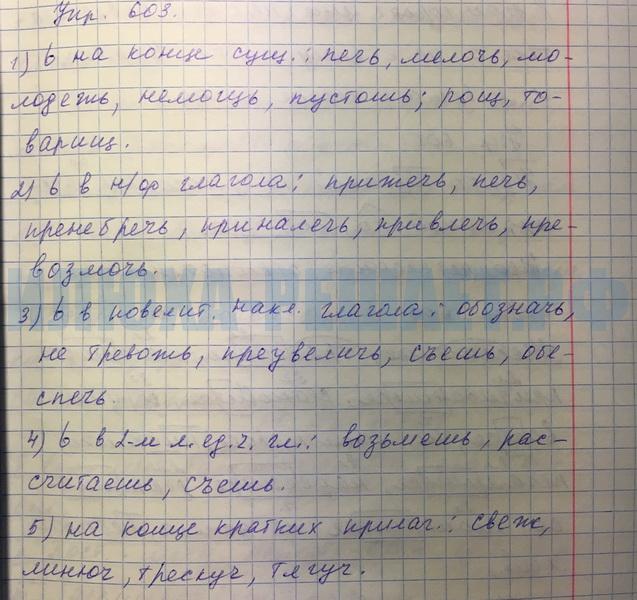 Упр. 603.
1) ь на конце сущ.: печь, мелочь, мо-
лодежь, немощь, пустошь; рощ, то-
варищ.
2) ь в н/ф глагола: прижечь, печь,
пренебречь, приналечь, привлечь, пре-
возмочь.
3) ь в повелит. накл. глагола: обозначь,
не тревожь, преувеличь, съешь, обе-
спечь.
4) ь в 2-м л. ед. ч. гл.: возьмешь, рас-
считаешь, съешь.
5) на конце кратких прилаг.: свеж,
линюч, трескуч, тягуч.